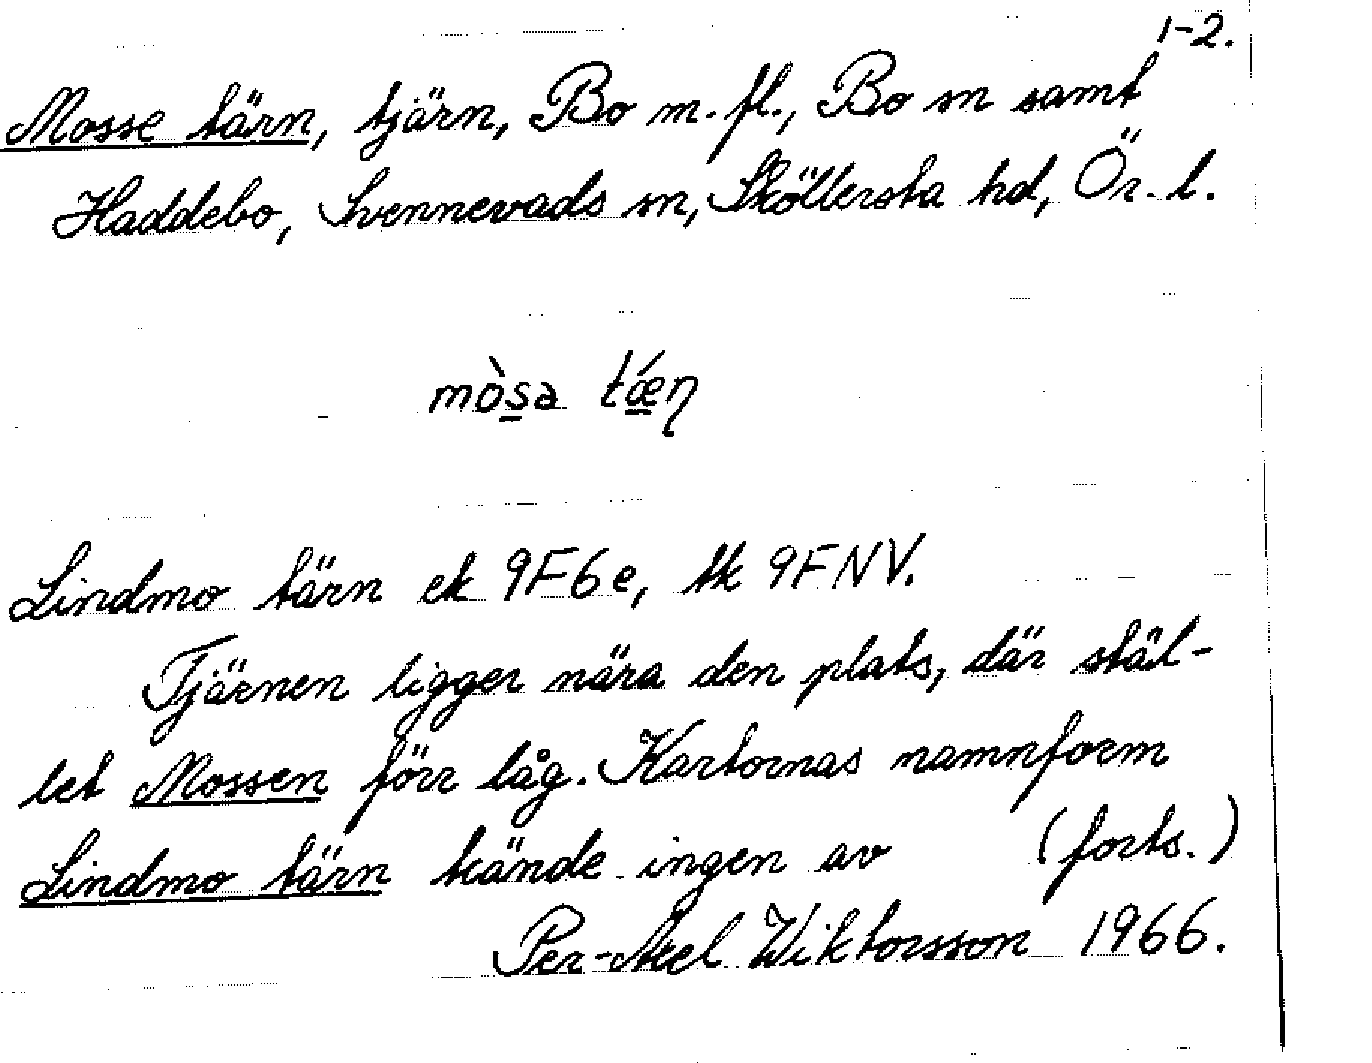 1-2.
Mosse tärn, tjärn, Bo m.fl., Bo sn samt
Haddebo, Svennevads sn, Sköllersta hd, Ör. l.
mòsa tǽɳ
Lindmo tärn ek 9F6e, tk 9FNV.
Tjärnen ligger nära den plats, där stäl-
let Mossen förr låg. Kartornas namnform
Lindmo tärn kände ingen av (forts.)
Per-Axel Wiktorsson 1966.